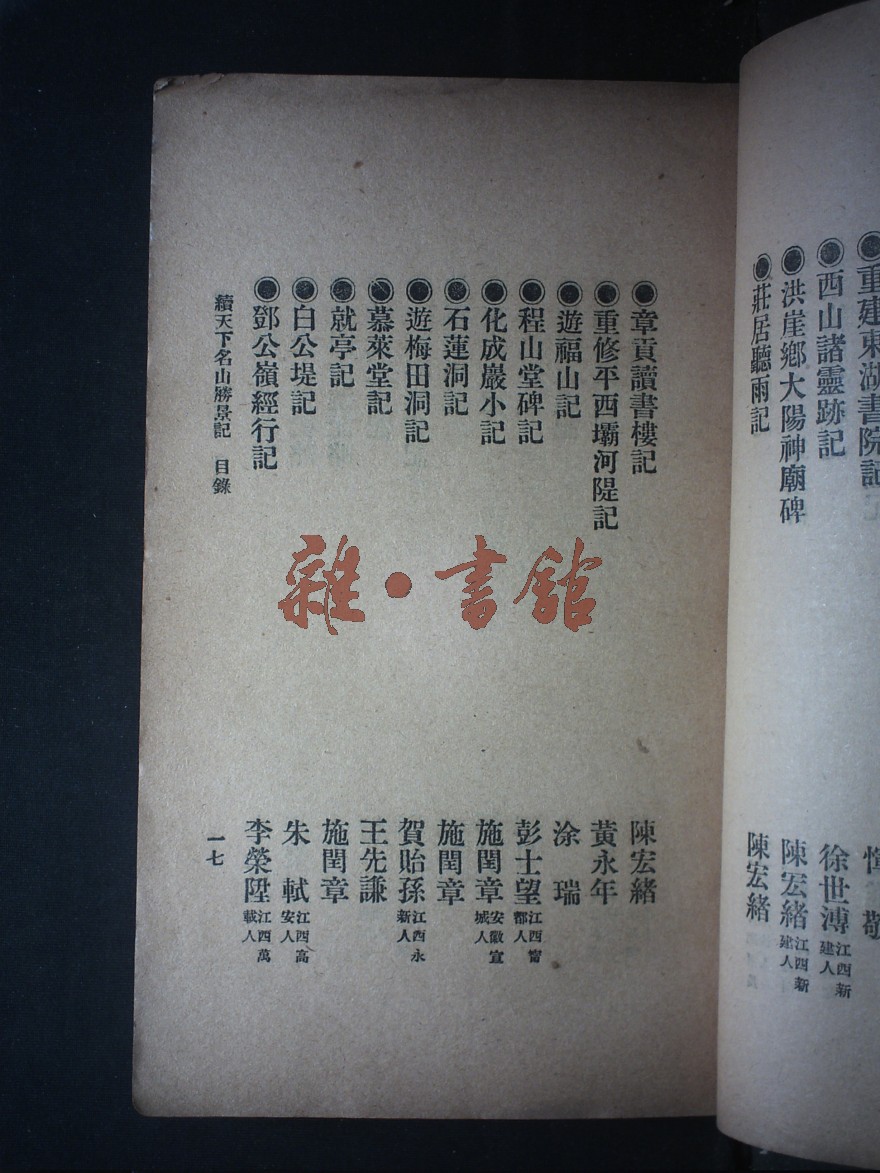 重建東湖書院記　惲敬
西山諸靈跡記　徐世溥江西新建人
洪崖鄉大陽神廟碑　陳宏緒江西新建人
莊居聽雨記　陳宏緒
章貢讀書樓記　陳宏緒
重修平西壩河隄記　黃永年
遊福山記　涂瑞
程山堂碑記　彭士望江西甯都人
化成巖小記　施閏章安徽宣城人
石蓮洞記　施閏章
遊梅田洞記　賀貽孫江西永新人
慕萊堂記　王先謙
就亭記　施閏章
白公堤記　朱軾江西高安人
鄧公嶺經行記　李榮陞江西萬載人
續天下名山勝景記　目錄　一七
雜·書館